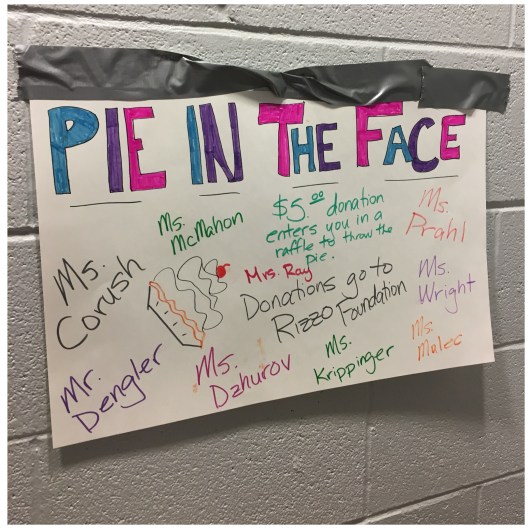 PIE IN THE FACE
Ms.
McMahon
$5.00 donation
enters you in a
raffle to throw the
Pie.
Ms.
Prahl
Ms.
Corush
Mrs. Ray
Donations go to
Rizzo Foundation
Ms.
Wright
Mr.
Dengler
Ms.
Dzhurov
Ms.
Krippinger
Ms.
Malec